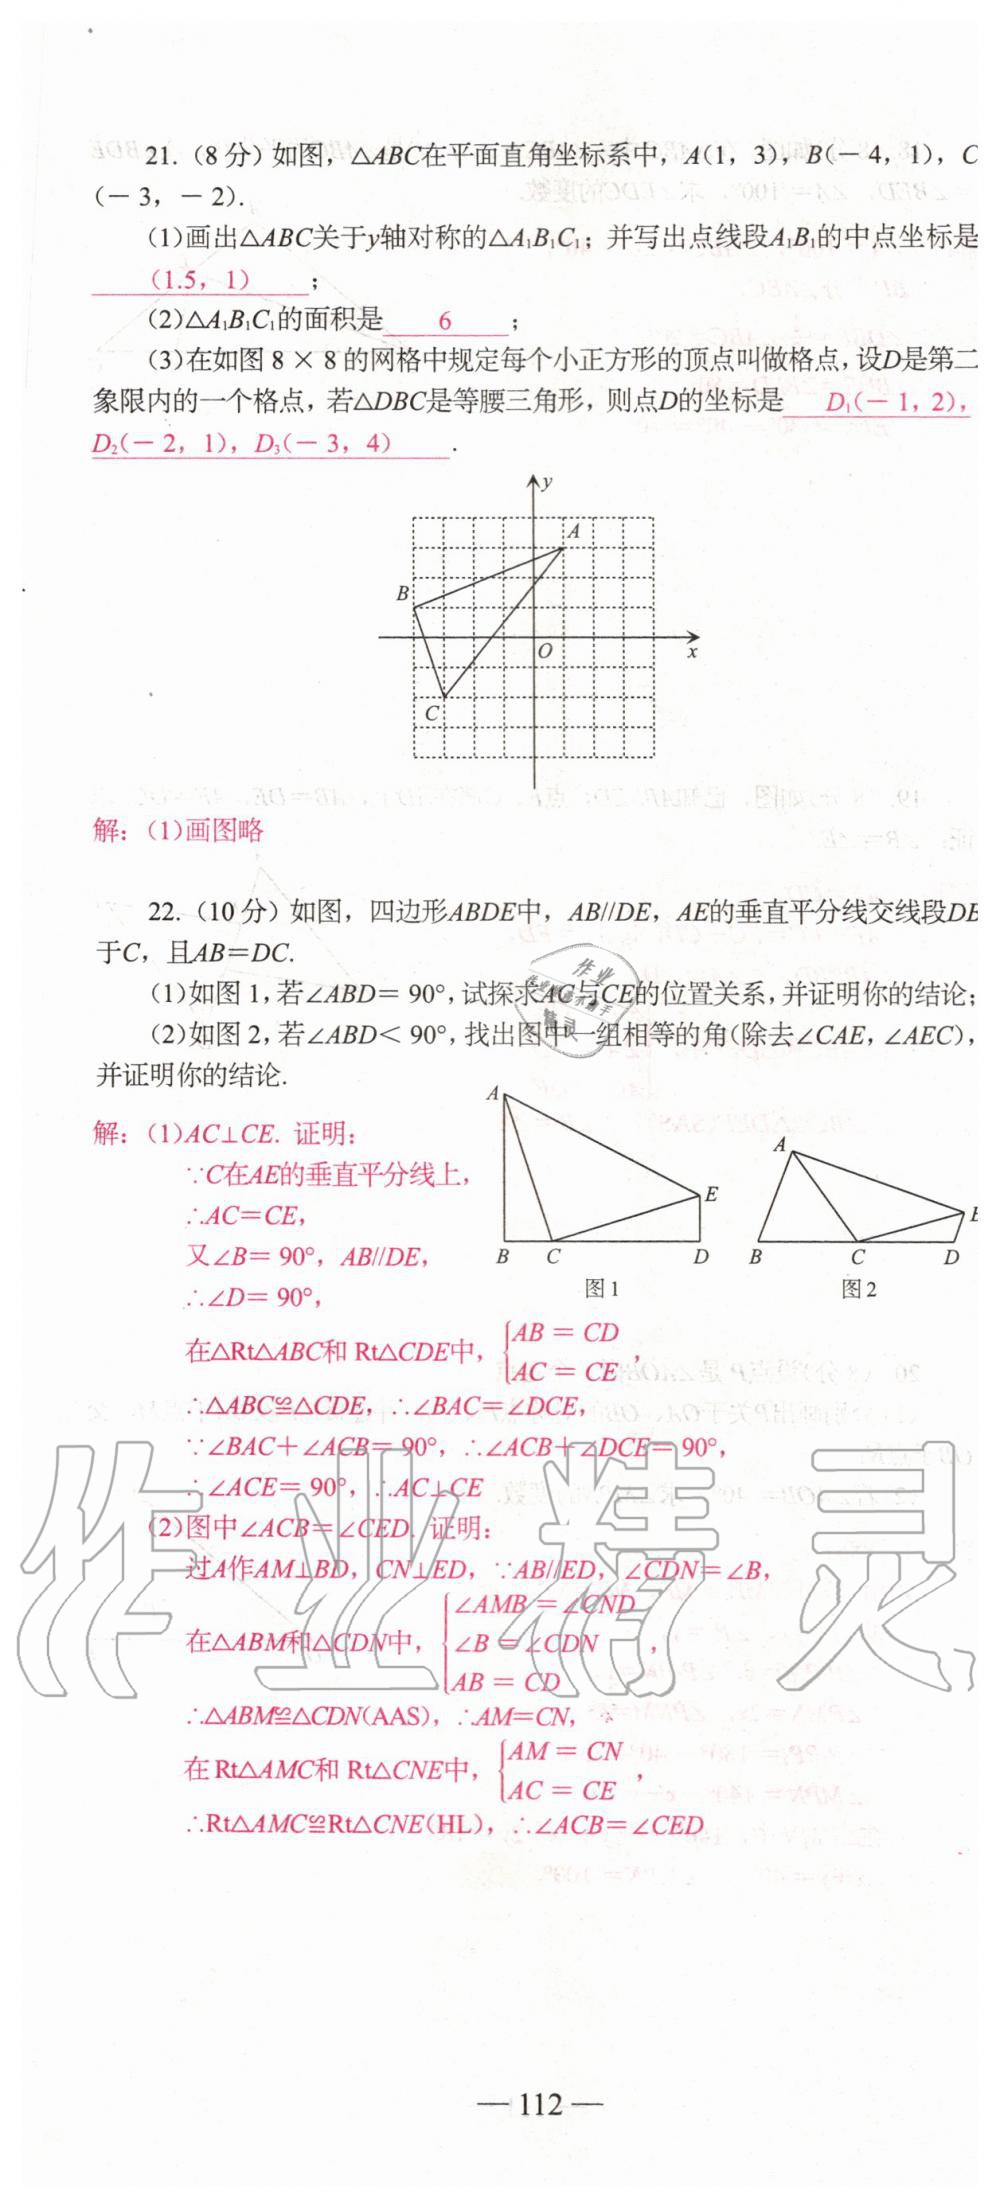 21.(8分)如图，△ABC在平面直角坐标系中，A(1，3)，B(－4，1)，C
(－3，－2).
(1)画出△ABC关于y轴对称的△A₁B₁C₁；并写出点线段A₁B₁的中点坐标是
(1.5，1)；
(2)△A₁B₁C₁的面积是 6 ；
(3)在如图8×8的网格中规定每个小正方形的顶点叫做格点，设D是第二
象限内的一个格点，若△DBC是等腰三角形，则点D的坐标是 D₁(－1，2)，
D₂(－2，1)，D₃(－3，4) .
y
A
B
O
x
C
解：(1)画图略
22.(10分)如图，四边形ABDE中，AB//DE，AE的垂直平分线交线段DE
于C，且AB＝DC.
作业
精灵
(1)如图1，若∠ABD＝90°，试探求AC与CE的位置关系，并证明你的结论；
(2)如图2，若∠ABD＜90°，找出图中一组相等的角(除去∠CAE，∠AEC)，
并证明你的结论.
A
E
B C D
图1
A
E
B C D
图2
解：(1)AC⊥CE. 证明：
∵C在AE的垂直平分线上，
∴AC＝CE，
又∠B＝90°，AB//DE，
∴∠D＝90°，
在△Rt△ABC和Rt△CDE中，{AB＝CD
AC＝CE，
∴△ABC≌△CDE，∴∠BAC＝∠DCE，
∵∠BAC＋∠ACB＝90°，∴∠ACB＋∠DCE＝90°，
∴∠ACE＝90°，∴AC⊥CE
(2)图中∠ACB＝∠CED. 证明：
过A作AM⊥BD，CN⊥ED，∵AB//ED，∠CDN＝∠B，
在△ABM和△CDN中，{∠AMB＝∠CND
∠B＝∠CDN
AB＝CD，
∴△ABM≌△CDN(AAS)，∴AM＝CN，
在Rt△AMC和Rt△CNE中，{AM＝CN
AC＝CE，
∴Rt△AMC≌Rt△CNE(HL)，∴∠ACB＝∠CED
作业精灵
— 112 —